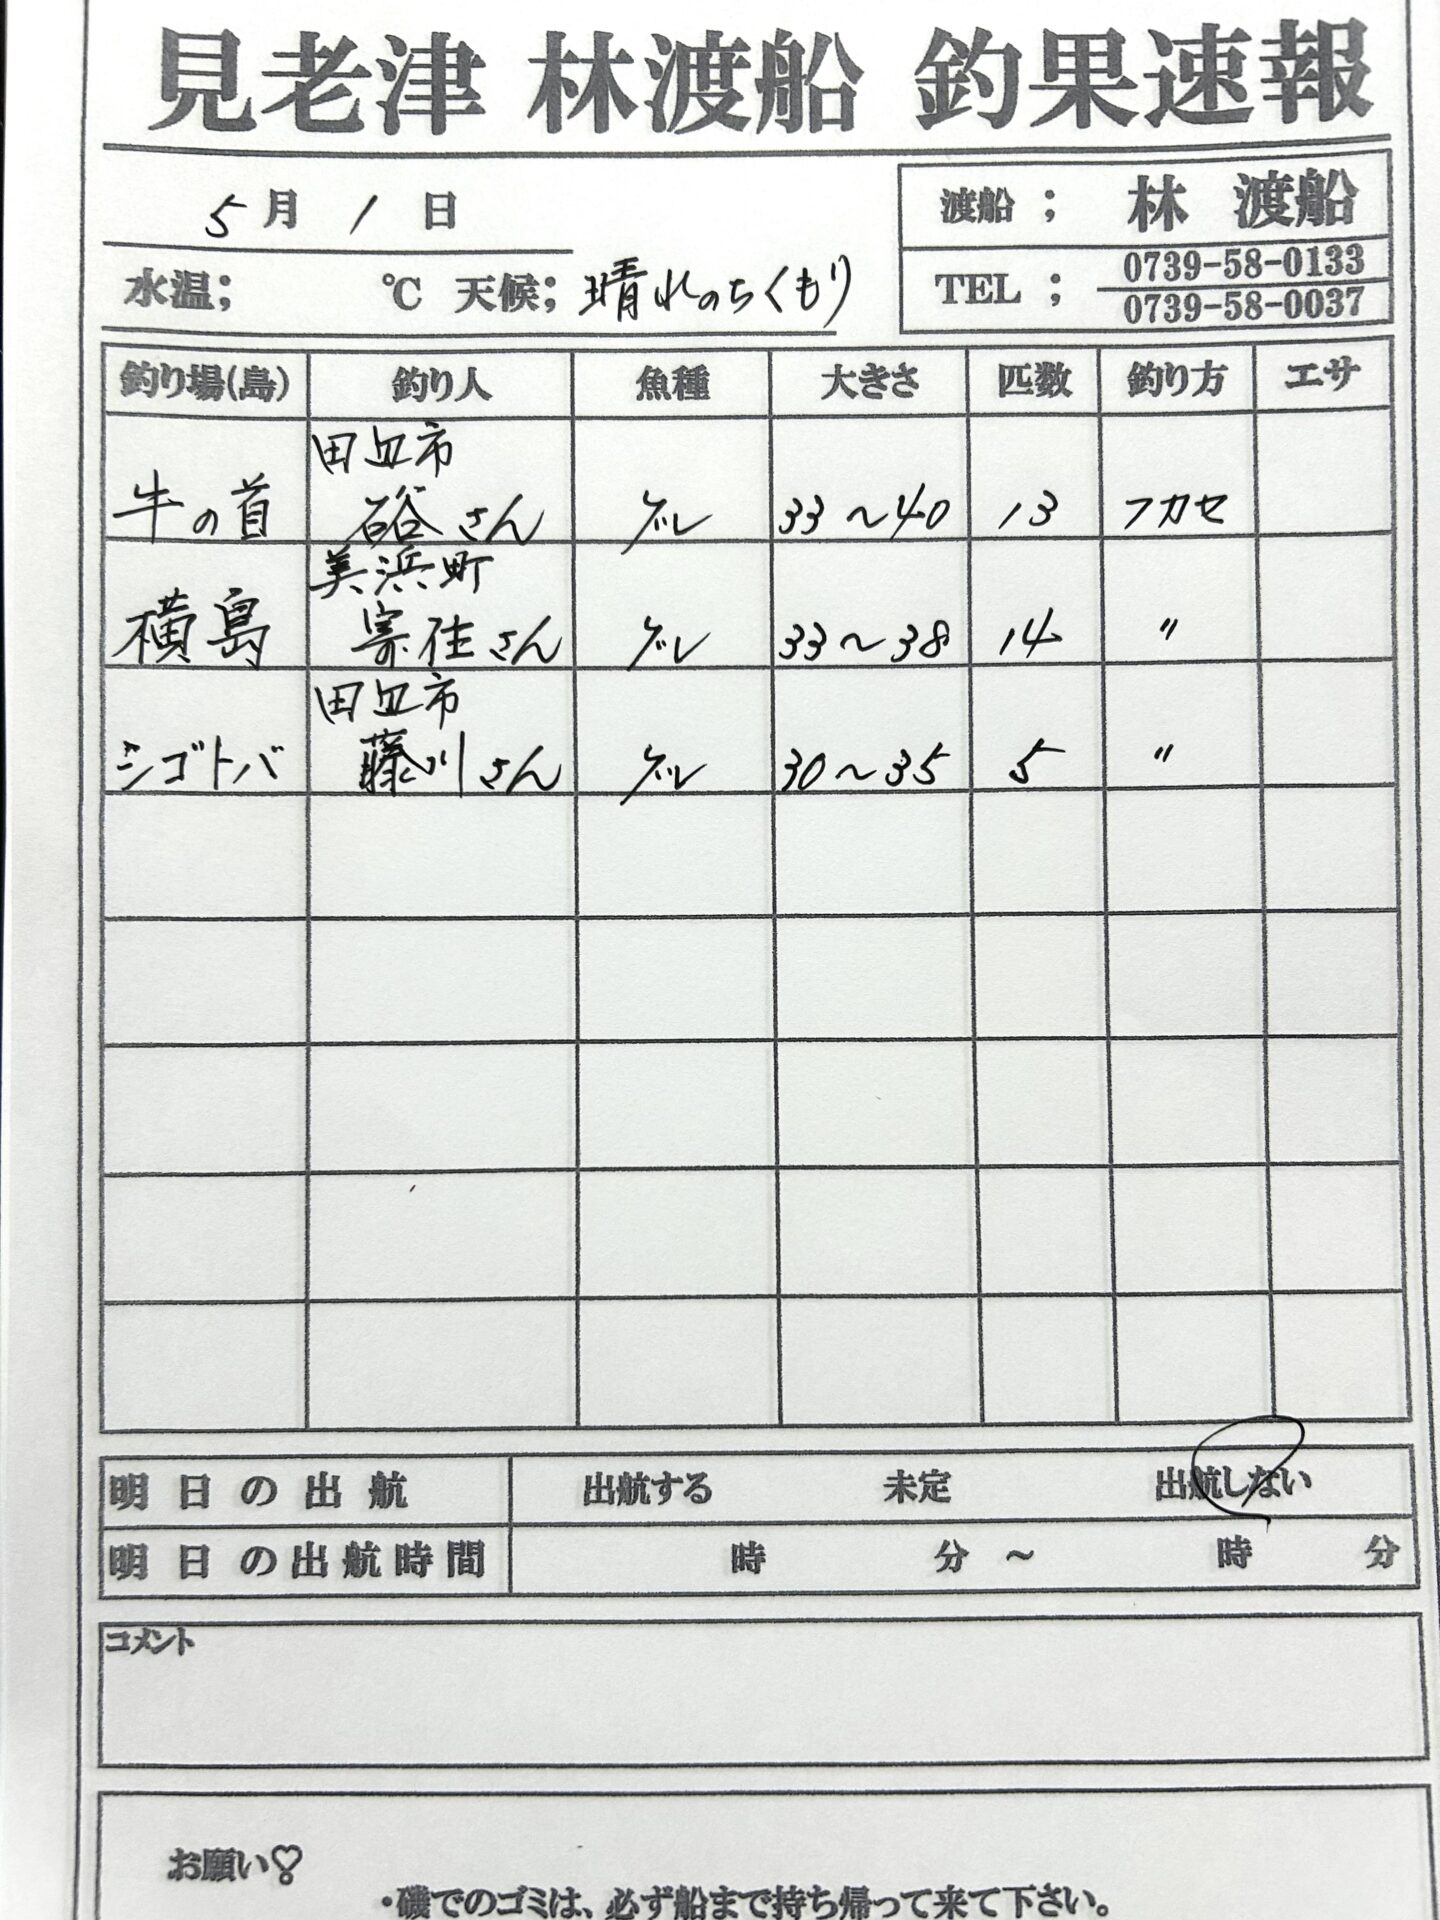 見老津 林渡船 釣果速報
5月 1日
渡船; 林 渡船
水温; ℃ 天候; 晴れのちくもり
TEL; 0739-58-0133
0739-58-0037
釣り場(島) 釣り人 魚種 大きさ 匹数 釣り方 エサ
田辺市
牛の首 硲さん グレ 33～40 13 フカセ
美浜町
横島 寄住さん グレ 33～38 14 〃
田辺市
シゴトバ 藤川さん グレ 30～35 5 〃
明日の出航 出航する 未定 出航しない
明日の出航時間 時 分 ～ 時 分
コメント
お願い♡
・磯でのゴミは、必ず船まで持ち帰って来て下さい。